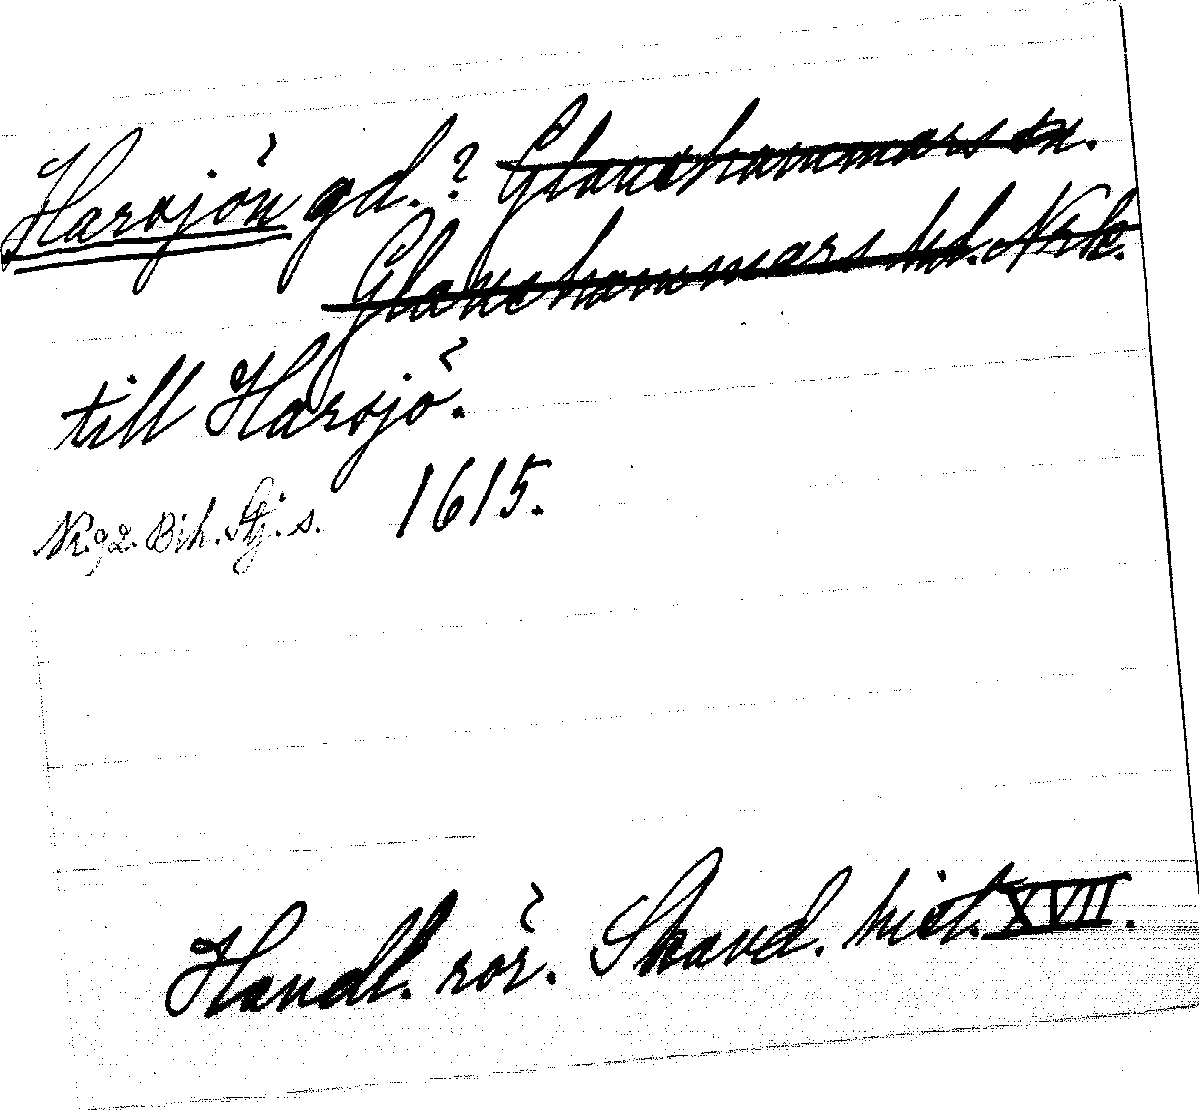 Harsjön gd.? Glanshammars sn.
Glanshammars hd. Nrk.
till Harsjö.
1615.
Handl. rör. Skand. hist. XVII.